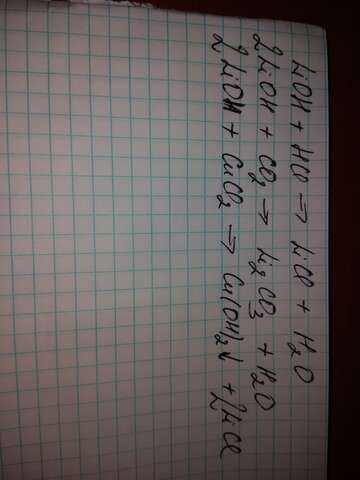 LiOH + HCl → LiCl + H₂O
2LiOH + CO₂ → Li₂CO₃ + H₂O
2LiOH + CuCl₂ → Cu(OH)₂↓ + 2LiCl